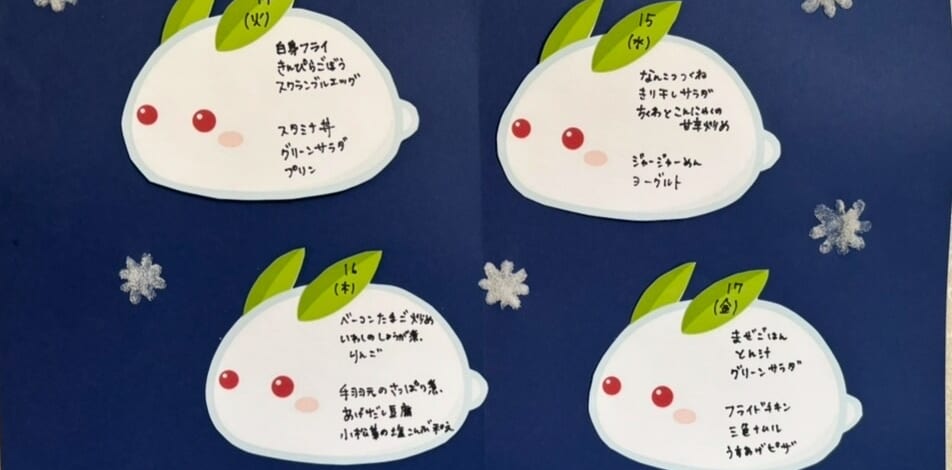 (火)
白身フライ
きんぴらごぼう
スクランブルエッグ
スタミナ丼
グリーンサラダ
プリン
15
(水)
なんこつつくね
きり干しサラダ
ちくわとこんにゃくの
甘辛炒め
ジャージャーめん
ヨーグルト
16
(木)
ベーコンたまご炒め
いわしのしょうが煮
りんご
手羽元のさっぱり煮
あげだし豆腐
小松菜の塩こんぶ和え
17
(金)
まぜごはん
とん汁
グリーンサラダ
フライドチキン
三色ナムル
うすあげピザ